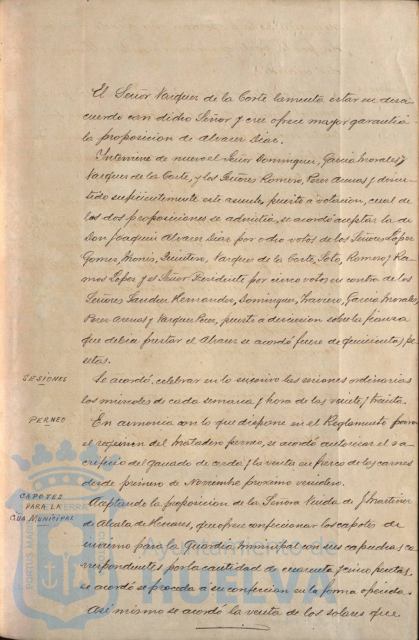 El Señor Vazquez de la Corte lamenta estar en desa
cuerdo con dicho Señor y cree ofrece mayor garantía
la proposicion de Alvarez Diaz.
Interviene de nuevo el Señor Dominguez, Garcia Morales y
Vazquez de la Corte, y los Señores Romero, Perez Arenas y discu
tido suficientemente este asunto, puesto a votacion, cual de
las dos proposiciones se admitia, se acordó aceptar la de
Don Joaquin Alvarez Diaz por ocho votos de los Señores Lopez
Gomez, Quintero, Vazquez de la Corte, Soto, Romero y Ra
mos Lopez y el Señor Presidente por cinco votos en contra de los
Señores Sanchez Hernandez, Dominguez, Garcia Morales,
Perez Arenas y Vazquez Perez, puesto a discusion sobre la fianza
que debia prestar el Alvarez se acordó fuese de quinientas pe
setas.
SESIONES
Se acordó celebrar en lo sucesivo las sesiones ordinarias
los miercoles de cada semana y hora de las veinte y treinta.
PERNEO
En armonia con lo que dispone en el Reglamento para
el regimen del matadero perneo, se acordó autorizar el sa
crificio del ganado de cerda y la venta en fresco de las carnes
desde primero de Noviembre proximo venidero.
CAPOTES
PARA LA
GUA MUNICIPAL
Aceptando la proposicion de la Señora Viuda de J. Martinez
de Alcala de Henares, que ofrece confeccionar los capotes de
invierno para la Guardia Municipal con sus capuchas co
rrespondientes por la cantidad de cincuenta y cinco pesetas,
se acordó se proceda a su confeccion en la forma ofrecida.
Asi mismo se acordó la venta de los solares que
PORTUS MARIS
Ayuntamiento de
HUELVA